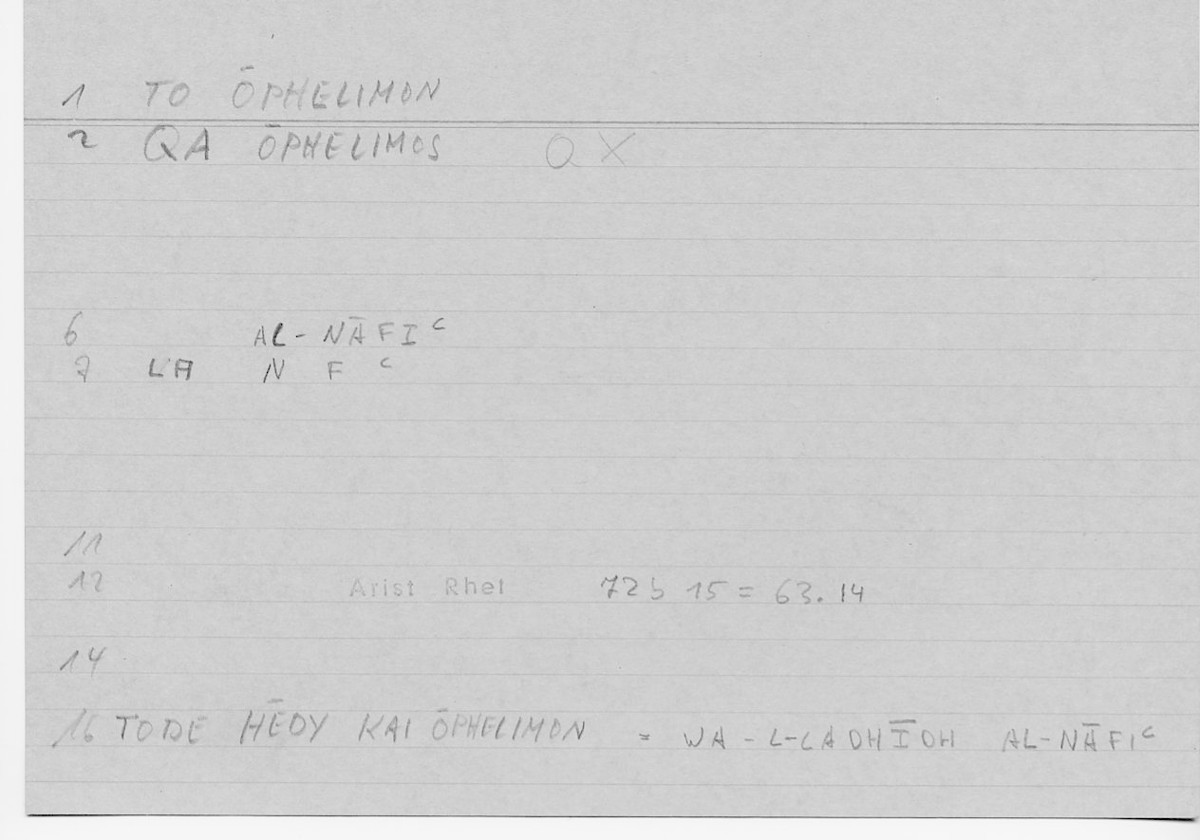 1 TO ŌPHELIMON
2 QA ŌPHELIMOS OX
6 AL-NĀFIᶜ
7 LA N F ᶜ
11
12 Arist Rhet 72b 15 = 63.14
14
16 TODE HĒDY KAI ŌPHELIMON = WA-L-LADHĪDH AL-NĀFIᶜ